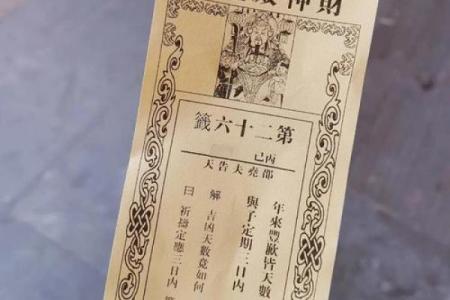 財神
第二十六籤
丙己
邵堯夫告天
年來豐歉皆天數
與子定期三日內
解 吉凶天數竟如何
曰 祈禱定應三日內